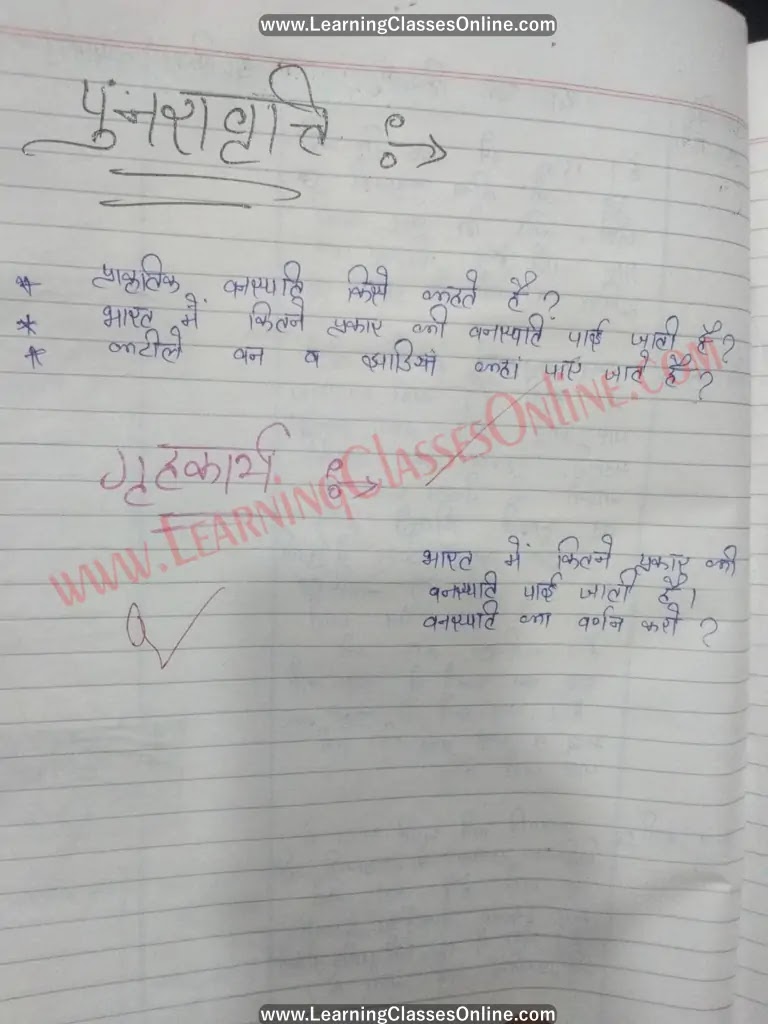 www.LearningClassesOnline.com
पुनरावृत्ति :→
* प्राकृतिक वनस्पति किसे कहते है ?
* भारत में कितने प्रकार की वनस्पति पाई जाती है ?
* कटीले वन व झाडियां कहां पाए जाते है ?
गृहकार्य :→
www.LearningClassesOnline.com
भारत में कितने प्रकार की
वनस्पति पाई जाती है।
वनस्पति का वर्णन करो ?
www.LearningClassesOnline.com